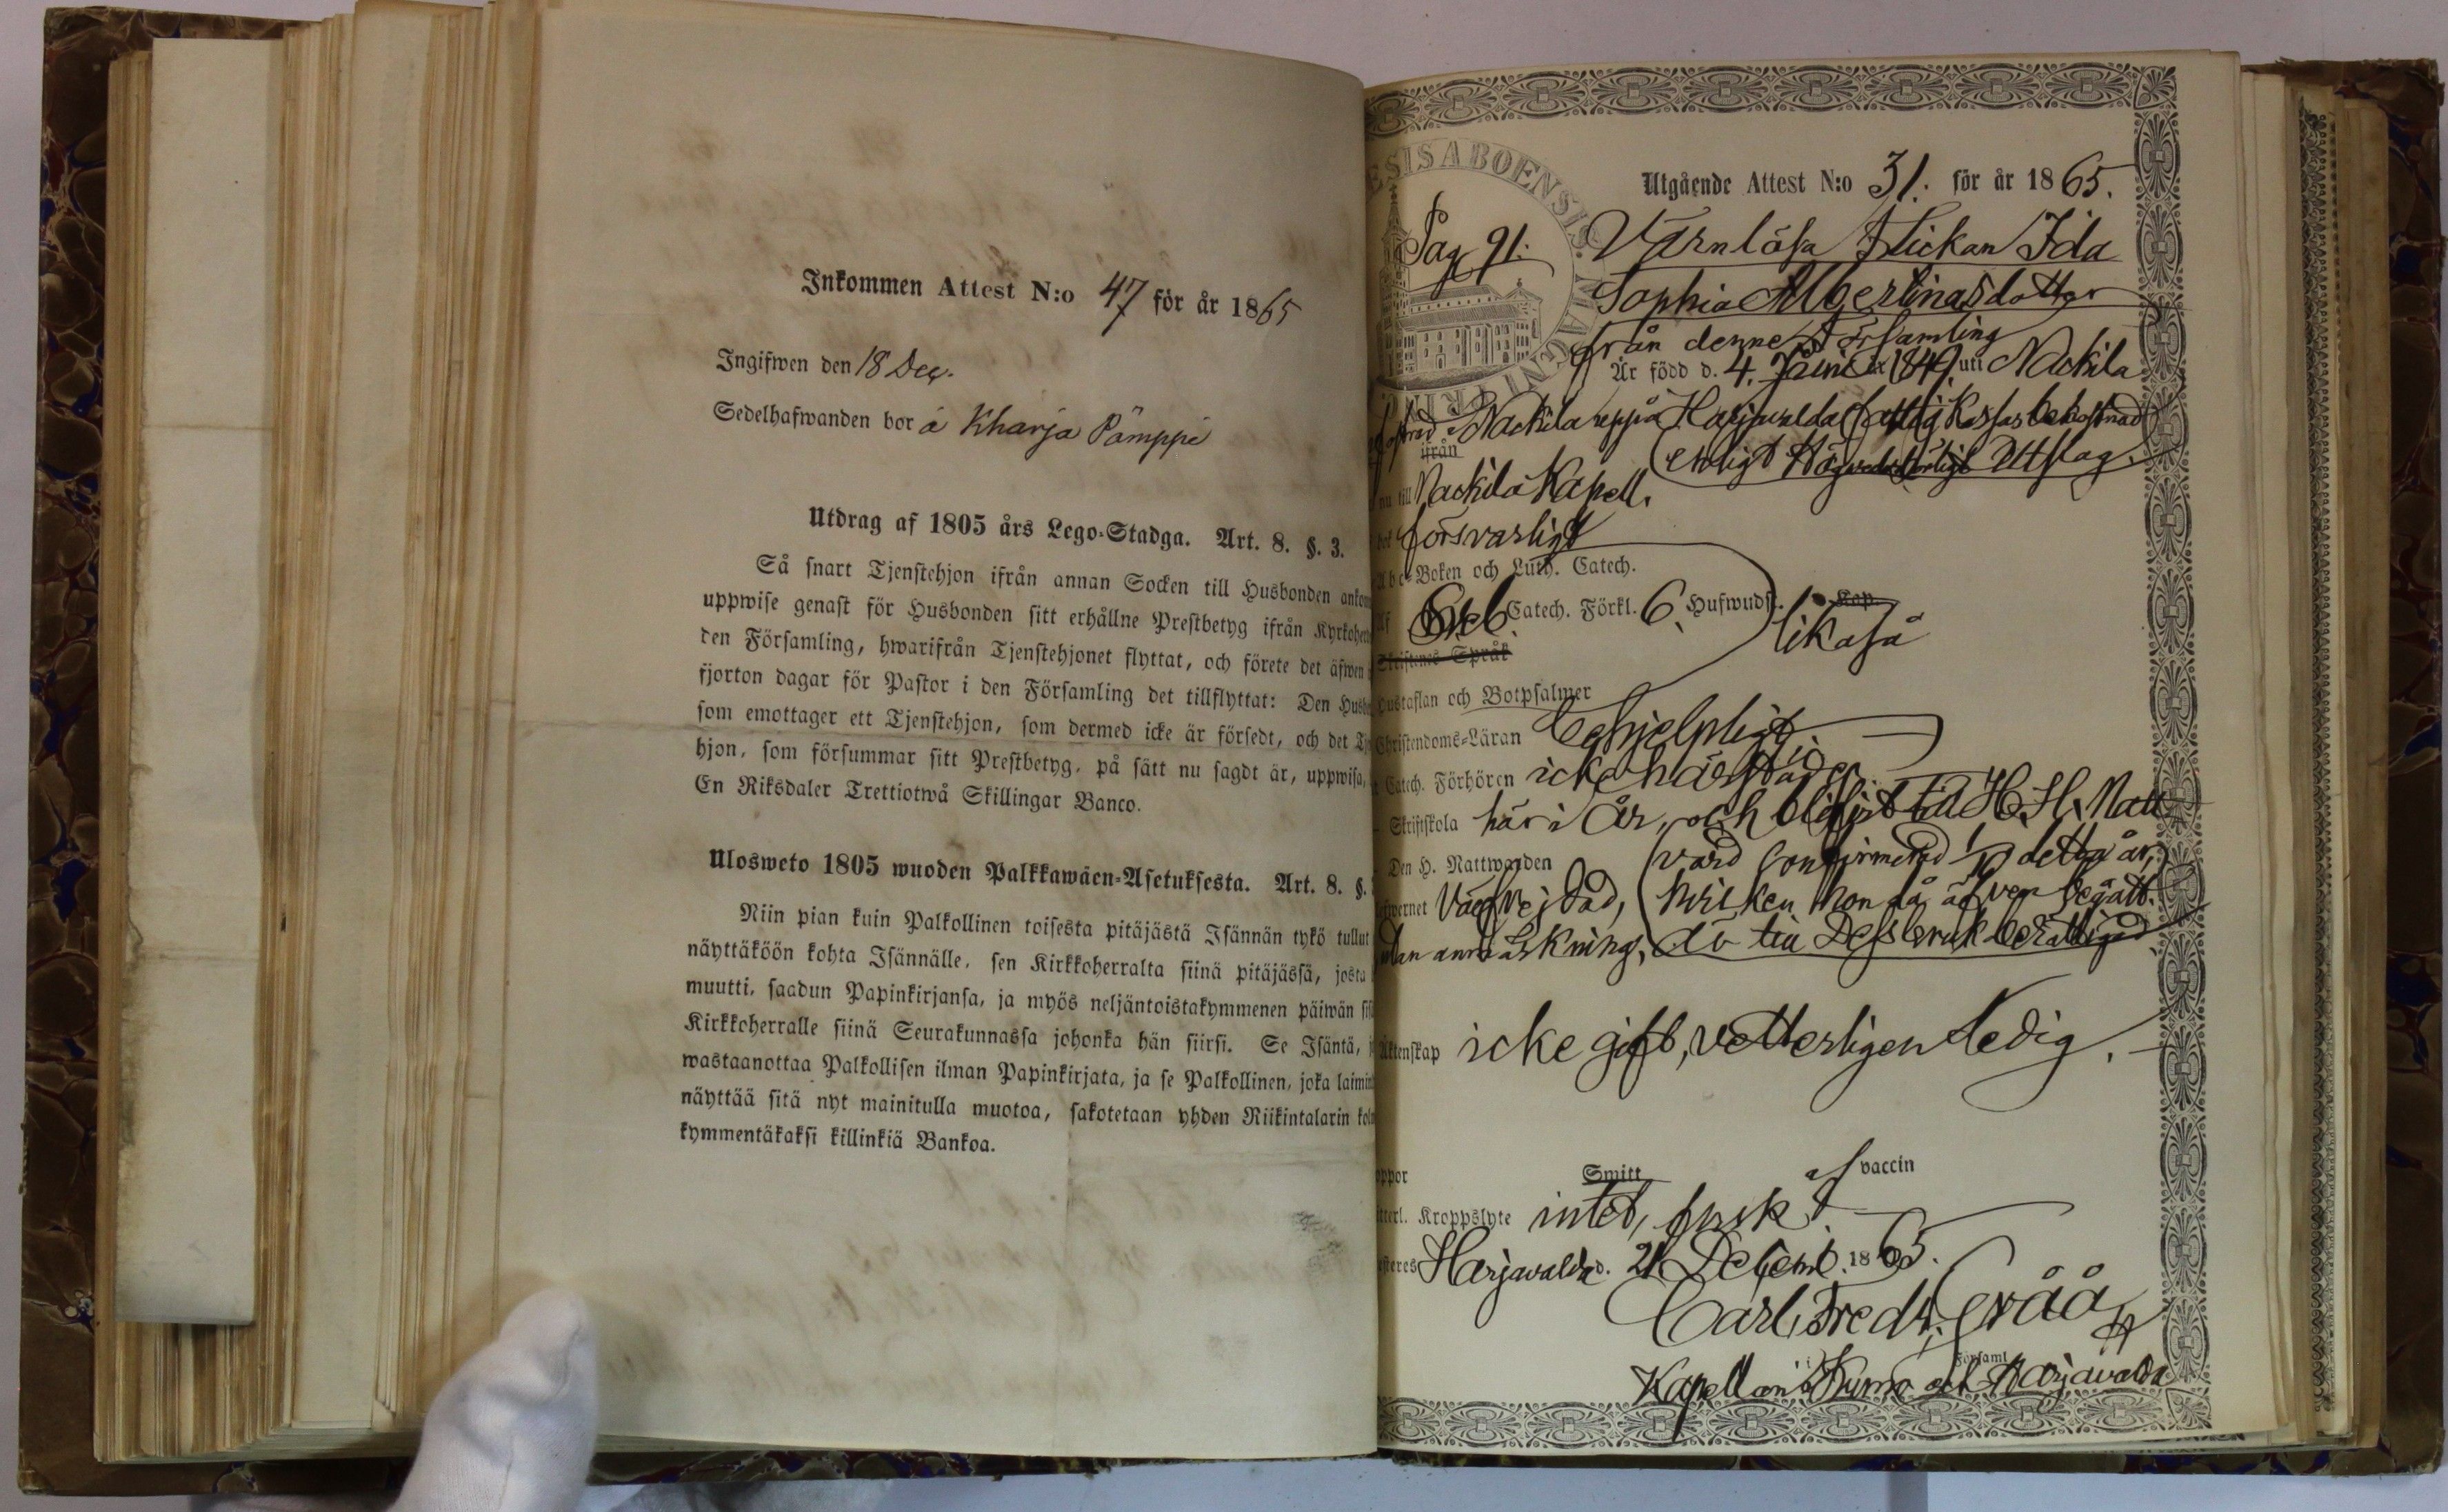 Inkommen Attest N:o 47 för år 1865
Ingifwen den 18 Dec.
Sedelhafwanden bor å Kharja Pämppi
Utdrag af 1805 års Lego-Stadga. Art. 8. §. 3.
Så snart Tjenstehjon ifrån annan Socken till Husbonden
uppwise genast för Husbonden sitt erhållne Prestbetyg ifrån
den Församling, hwarifrån Tjenstehjonet flyttat, och förete det äfwen
fjorton dagar för Pastor i den Församling det tillflyttat: Den
som emottager ett Tjenstehjon, som dermed icke är försedt, och det
hjon, som försummar sitt Prestbetyg, på sätt nu sagdt är, uppwisa,
En Riksdaler Trettiotwå Skillingar Banco.
Ulosweto 1805 wuoden Palkkawäen-Asetuksesta. Art. 8. §.
Niin pian kuin Palkollinen toisesta pitäjästä Isännän tykö tullut
näyttäköön kohta Isännälle, sen Kirkkoherralta siinä pitäjässä, josta
muutti, saadun Papinkirjansa, ja myös neljäntoistakymmenen päiwän
Kirkkoherralle siinä Seurakunnassa johonka hän siirsi. Se Isäntä,
wastaanottaa Palkollisen ilman Papinkirjata, ja se Palkollinen, joka
näyttää sitä nyt mainitulla muotoa, sakotetaan yhden Riikintalarin
kymmentäkaksi killinkiä Bankoa.
ESISABOENSIS
Utgående Attest N:o 31. för år 1865.
Pag 91. Värnlösa Flickan Ida
Sophia Albertinasdotter
från denne Församling
Är född d. 4. Junii 1849 uti Nackila
Nackila uppå Harjavalda fattig Kassas bekostnad
ifrån
enligt Utslag.
nu till Nackila Kapell.
försvarligt
Abc-Boken och Luth. Catech.
Sveb. Catech. Förkl. 6. Hufwudst. Kap.
likaså
Skriftenes Språk
Hustaflan och Botpsalmer
Christendoms-Läran behjelpligt
Catech. Förhören icke
Skriftskola här i År, och till H. H. Natt
Den H. Nattwarden vard confirmerad detta år,
hvilken hon då äfven begått.
utan anmärkning, till Dess bruk berättigad
Äktenskap icke gift, vetterligen Ledig.
Smitt af vaccin
Kroppslyte intet, frisk
Harjavalda d. 21 Decemb. 1865.
Carl Fredr. Gråå
Församl
Kapellan i Kumo och Harjavalda